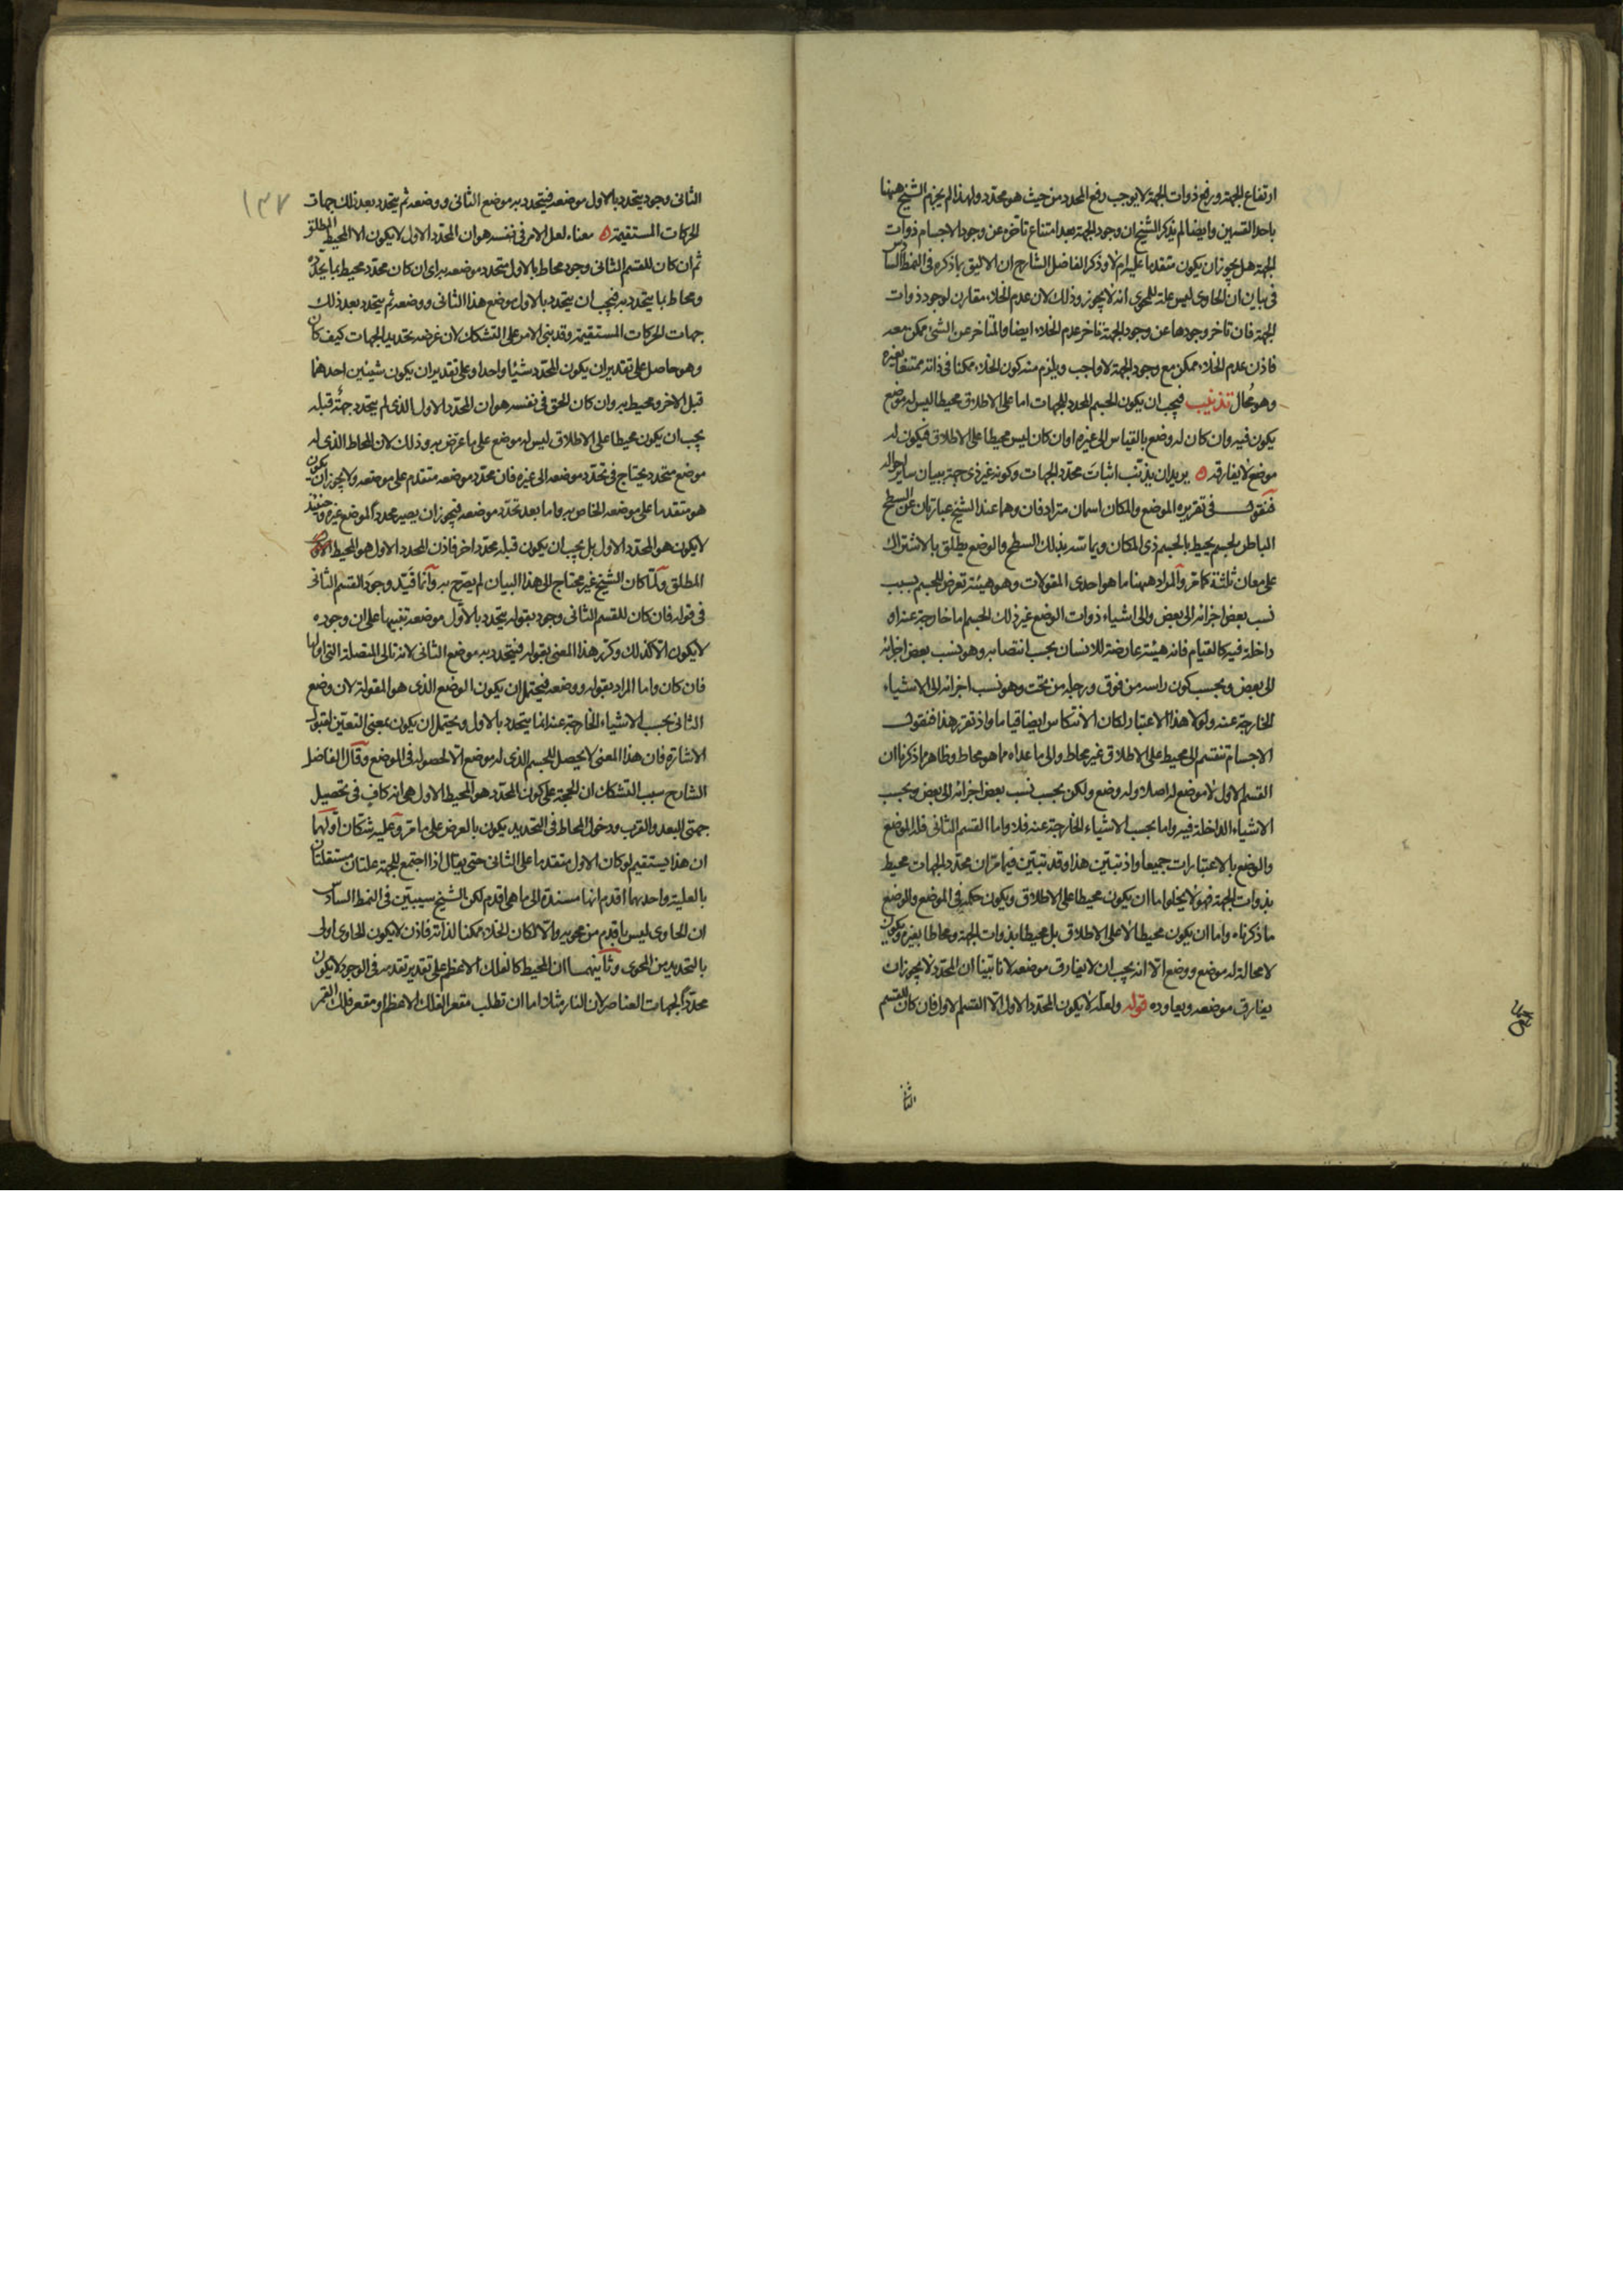 ارتفاع الجهة ورفع ذوات الجهة لا يوجب رفع المحدد من حيث هو محدد ولهذا لم يجزم الشيخ ههنا
باحد القسمين وايضا لم يذكر الشيخ ان وجود الجهة بعد امتناع تاخره عن وجود الاجسام ذوات
الجهة هل يجوز ان يكون متقدما عليه ام لا وذكر الفاضل الشارح ان الاليق بما ذكره فى النمط السادس
فى بيان ان الحاوى ليس علة للمحوى انه لا يجوز وذلك لان عدم الخلاء مقارن لوجود ذوات
الجهة فان تاخر وجودها عن وجود الجهة تاخر عدم الخلاء ايضا والمتاخر عن الشئ ممكن معه
فاذن عدم الخلاء ممكن مع وجود الجهة لا واجب ويلزم منه كون الخلاء ممكنا فى ذاته ممتنعا بغيره
وهو محال تذنيب فيجب ان يكون الجسم المحدد للجهات اما على الاطلاق محيطا ليس له موضع
يكون فيه وان كان له وضع بالقياس الى غيره او ان كان ليس محيطا على الاطلاق فيكون له
موضع لا يفارقه ه يريد ان يذنب اثبات محدد الجهات وكونه غير ذى جهة ببيان ساير احواله
فنقول فى تقريره الموضع والمكان اسمان مترادفان وهما عند الشيخ عبارتان عن السطح
الباطن لجسم يحيط بالجسم ذى المكان ويماسه بذلك السطح والوضع يطلق بالاشتراك
على معان ثلثة كما مر والمراد ههنا ما هو احدى المقولات وهو هيئة تعرض للجسم بسبب
نسب بعض اجزائه الى بعض والى اشياء ذوات الوضع غير ذلك الجسم اما خارجة عنه او
داخلة فيه كالقيام فانه هيئة عارضة للانسان بحسب انتصابه وهو نسب بعض اجزائه
الى بعض وبحسب كون راسه من فوق ورجله من تحت وهو نسب اجزائه الى الاشياء
الخارجة عنه ولولا هذا الاعتبار لكان الانتكاس ايضا قياما واذ تقرر هذا فنقول
الاجسام تنقسم الى محيط على الاطلاق غير محاط والى ما عداه مما هو محاط وظاهر مما ذكرنا ان
القسم الاول لا موضع له اصلا وله وضع ولكن بحسب نسب بعض اجزائه الى بعض وبحسب
الاشياء الداخلة فيه واما بحسب الاشياء الخارجة عنه فلا واما القسم الثانى فله الموضع
والوضع بالاعتبارات جميعا واذ تبين هذا وقد تبين فيما مر ان محدد الجهات محيط
بذوات الجهة فهو لا يخلو اما ان يكون محيطا على الاطلاق ويكون حكمه فى الموضع والوضع
ما ذكرناه واما ان يكون محيطا لا على الاطلاق بل محيطا بذوات الجهة ومحاطا بغيره ويكون
لا محالة له موضع ووضع الا انه يجب ان لا يفارق موضعه لانا تبينا ان المحدد لا يجوز ان
يفارق موضعه ويعاوده قوله ولعله لا يكون المحدد الاول الا القسم الاول فان كان للقسم
الثانى
الثانى وجود يتحدد بالاول موضعه فيتحدد به موضع الثانى ووضعه ثم يتحدد بعد ذلك جهات
١٣٧
الحركات المستقيمة ه معناه لعل الامر فى نفسه هو ان المحدد الاول لا يكون الا المحيط المطلق
ثم ان كان للقسم الثانى وجود محاط بالاول متحدد موضعه به اى ان كان محدد محيط بما يحدده
ومحاط بما يتحدد به فيجب ان يتحدد بالاول موضع هذا الثانى ووضعه ثم يتحدد بعد ذلك
جهات الحركات المستقيمة وقد بنى الامر على التشكك لان غرضه تحديد الجهات كيف كان
وهو حاصل على تقدير ان يكون المحدد شيئا واحدا وعلى تقدير ان يكون شيئين احدهما
قبل الاخر ومحيط به وان كان الحق فى نفسه هو ان المحدد الاول الذى لم يتحدد جهته قبله
يجب ان يكون محيطا على الاطلاق ليس له موضع على ما عرض به وذلك لان المحاط الذى له
موضع متحدد يحتاج فى تحدد موضعه الى غيره فان محدد موضعه متقدم على موضعه ولا يجوز ان يكون
هو متقدما على موضعه الخاص به واما بعد تحدد موضعه فيجوز ان يصير محددا لموضع غيره وحينئذ
لا يكون هو المحدد الاول بل يجب ان يكون قبله محدد اخر فاذن المحدد الاول هو المحيط الاول
المطلق ولما كان الشيخ غير محتاج الى هذا البيان لم يصرح به وانما قيد وجود القسم الثانى
فى قوله فان كان للقسم الثانى وجود بقوله يتحدد بالاول موضعه تنبيها على ان وجوده
لا يكون الا كذلك وكرر هذا المعنى بقوله فيتحدد به موضع الثانى لانه تالى المتصلة التى اولها
فان كان واما المراد بقوله ووضعه فيحتمل ان يكون الوضع الذى هو المقولة لان وضع
الثانى بحسب الاشياء الخارجة عنه انما يتحدد بالاول ويحتمل ان يكون بمعنى التعين لقبول
الاشارة فان هذا المعنى لا يحصل للجسم الذى له موضع الا لحصوله فى الموضع وقال الفاضل
الشارح سبب التشكك ان الحجة على كون المحدد هو المحيط الاول هى انه كاف فى تحصيل
جهتى البعد والقرب ودخول المحاط فى التحديد يكون بالعرض على ما مر وعليه شكان اولهما
ان هذا يستقيم لو كان الاول متقدما على الثانى حتى يقال اذا اجتمع للجهة علتان مستقلتان
بالعلية واحديهما اقدم انها مسندة الى ما هى اقدم لكن الشيخ سيبين فى النمط السادس
ان الحاوى ليس باقدم من محويه والا لكان الخلاء ممكنا لذاته فاذن لا يكون الحاوى اولى
بالتحديد من المحوى وثانيهما ان المحيط كالفلك الاعظم على تقدير تقدمه فى الوجود لا يكون
محددا لجهات العناصر لان النار مثلا اما ان تطلب مقعر الفلك الاعظم او مقعر فلك القمر